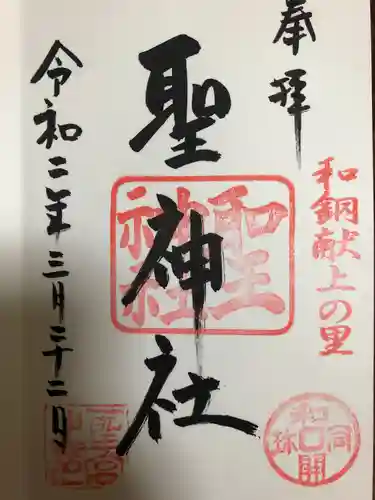 奉拝
和銅献上の里
聖神社
聖神社
令和二年三月二十二月
和同開珎